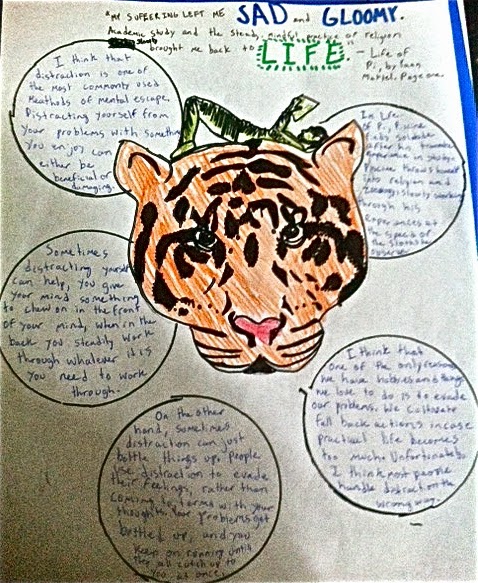 "MY SUFFERING LEFT ME SAD and GLOOMY.
Academic study and the steady, mindful practice of religion
brought me back to LIFE." - Life of
Pi, by Yann
Martel. Page one.
I think that
distraction is one of
the most commonly used
Meathods of mental escape.
Distracting yourself from
your problems with something
you enjoy can
either be
beneficial or
damaging.
In Life
of Pi, Pi
after his
experience in
religion and
working
through his
experiences at
the
Sometimes
distracting yourself
can help, you give
your mind something
to chew on in the front
of your mind, when in the
back you steadily work
through whatever it is
you need to work
through.
I think that
one of the only reasons
we have hobbies and things
we love to do is to evade
our problems. We cultivate
fall back actions in case
practical life becomes
too much. Unfortunately
I think most people
handle distraction the
wrong way.
On the other
hand, sometimes
distraction can just
bottle things up. People
use distraction to evade
their feelings, rather than
coming to terms with your
thoughts. Your problems get
bottled up, and you
keep on running until
they all catch up to
you at once.